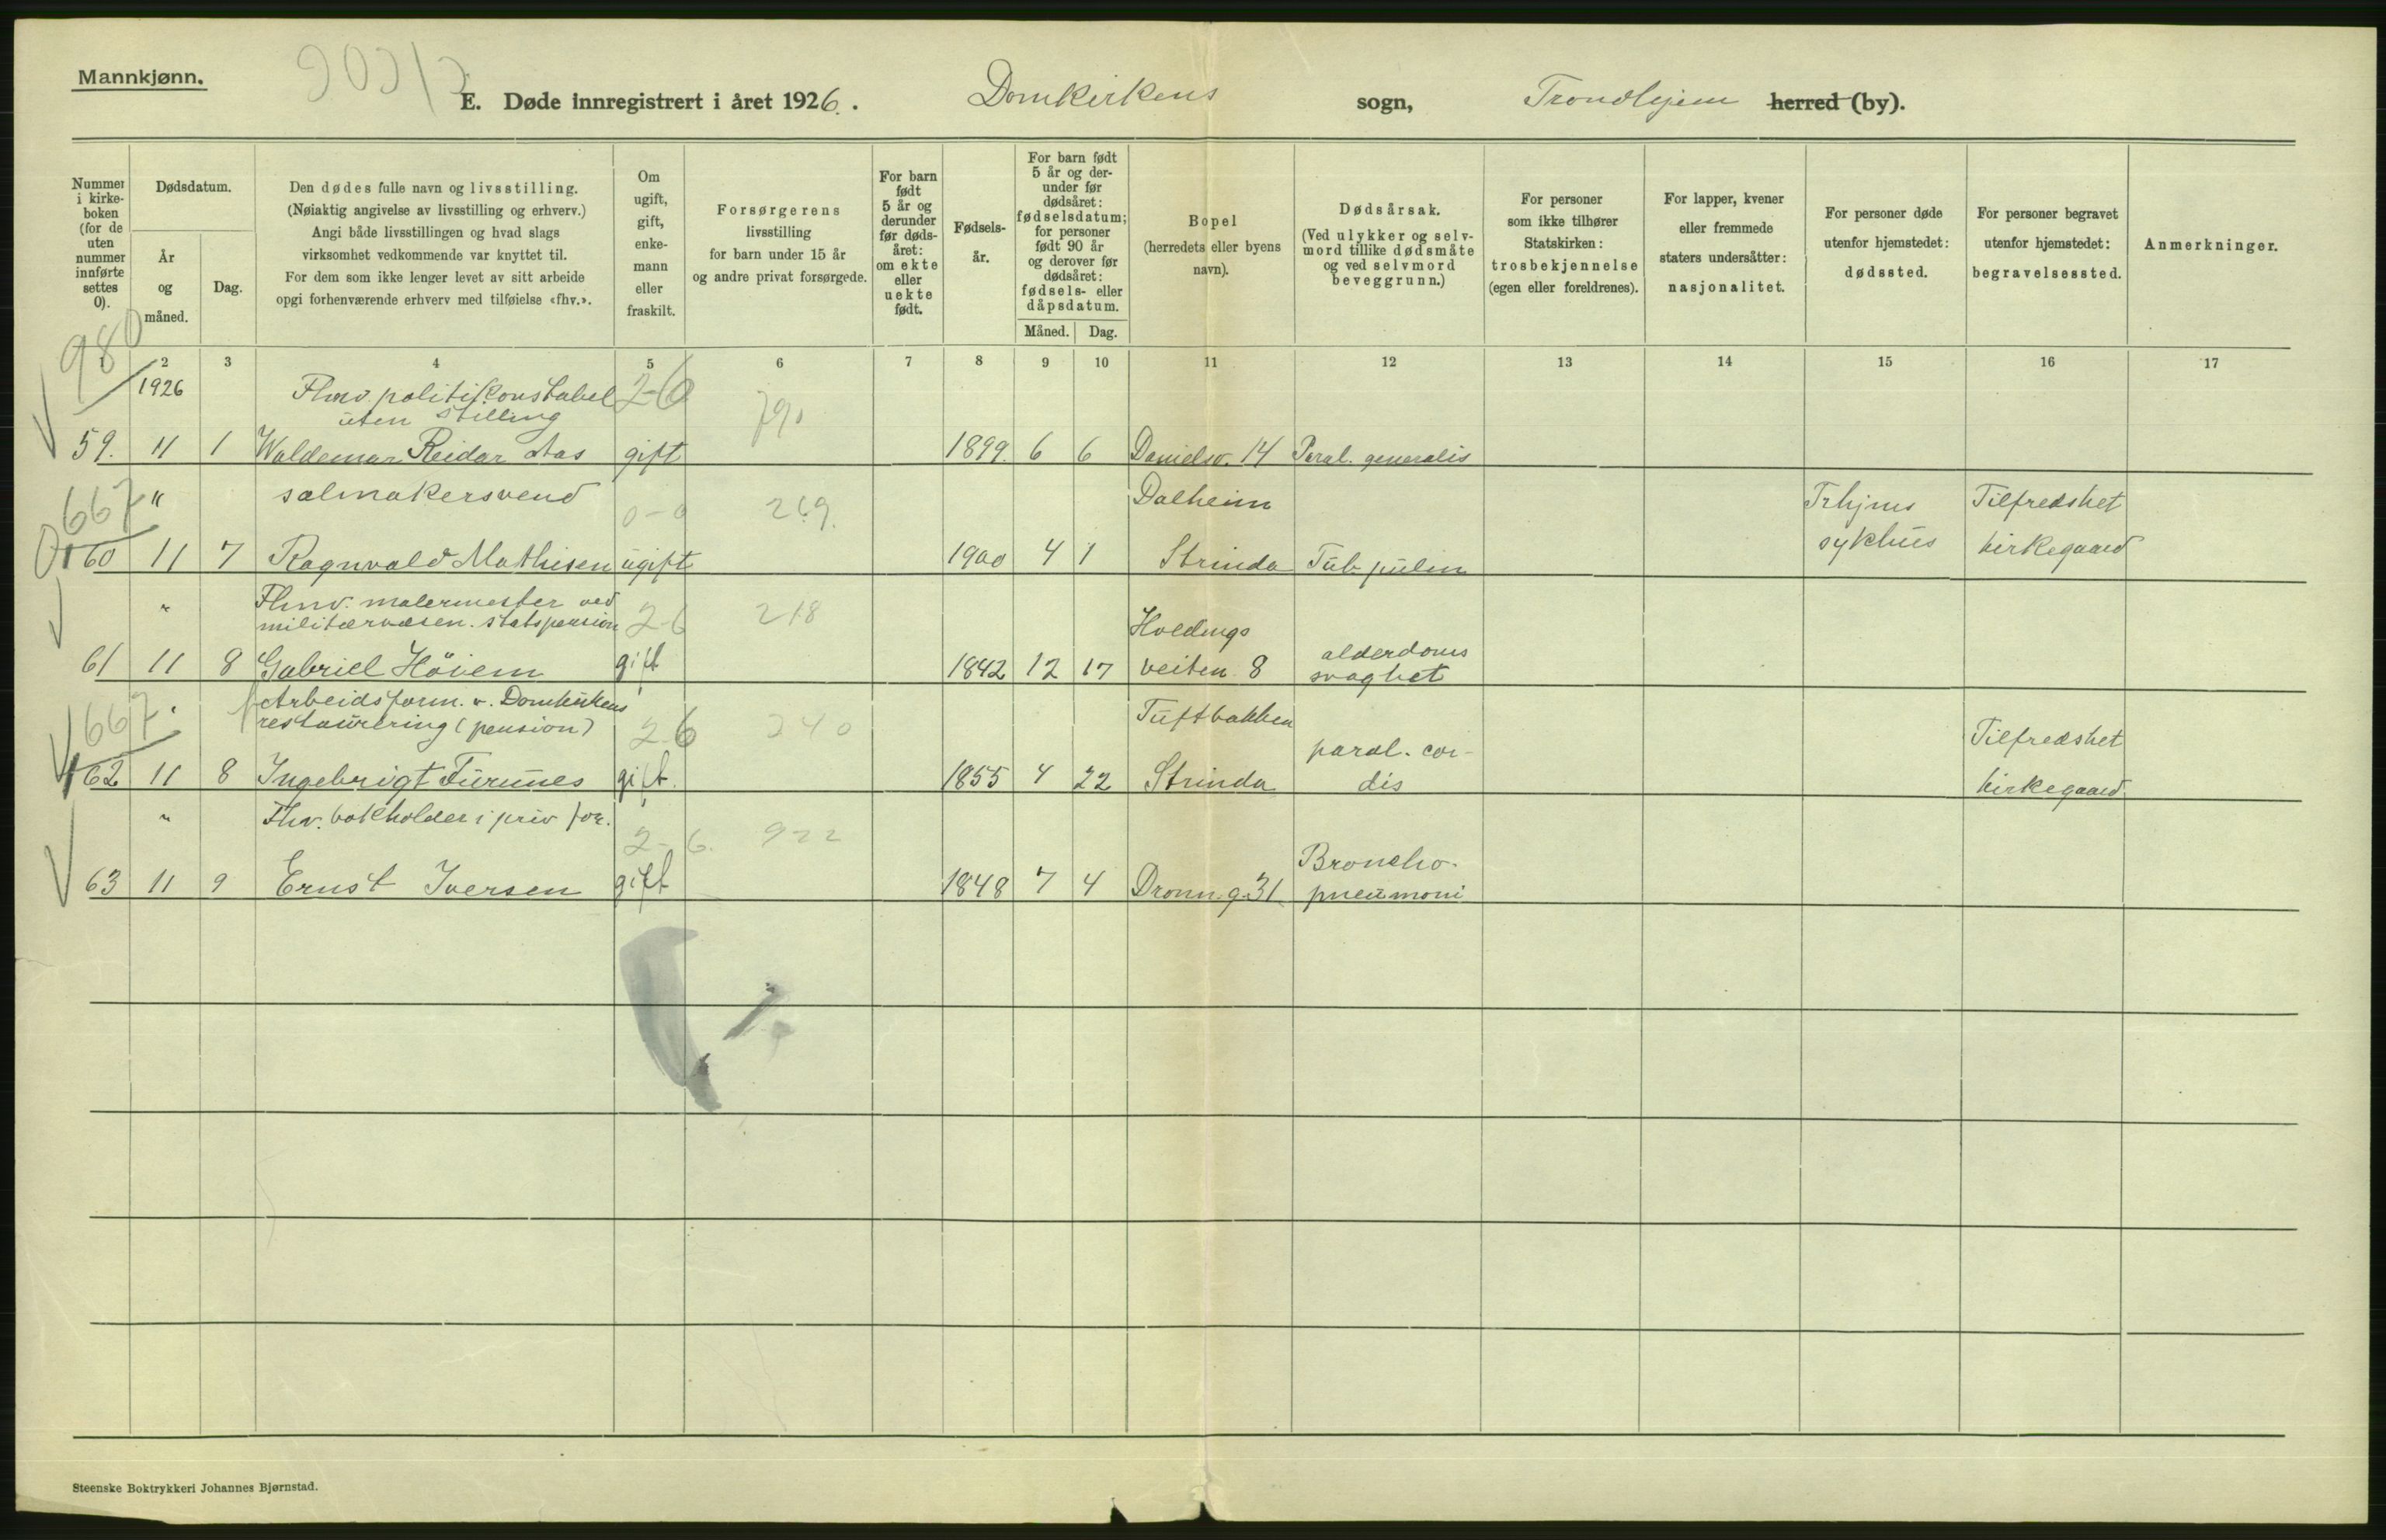 Mannkjønn.
E. Døde innregistrert i året 1926. Domkirkens sogn, Trondhjem herred (by).
Nummer i kirkeboken (for de uten nummer innførte settes 0).
Dødsdatum.
År og måned.
Dag.
Den dødes fulle navn og livsstilling.
(Nøiaktig angivelse av livsstilling og erhverv.)
Angi både livsstillingen og hvad slags
virksomhet vedkommende var knyttet til.
For dem som ikke lenger levet av sitt arbeide
opgi forhenværende erhverv med tilføielse «fhv.».
Om ugift, gift, enkemann eller fraskilt.
Forsørgerens
livsstilling
for barn under 15 år
og andre privat forsørgede.
For barn født 5 år og derunder før dødsåret: om ekte eller uekte født.
Fødselsår.
For barn født 5 år og derunder før dødsåret: fødselsdatum; for personer født 90 år og derover før dødsåret: fødsels- eller dåpsdatum.
Måned. Dag.
Bopel
(herredets eller byens
navn).
Dødsårsak.
(Ved ulykker og selvmord tillike dødsmåte og ved selvmord beveggrunn.)
For personer
som ikke tilhører
Statskirken:
trosbekjennelse
(egen eller foreldrenes).
For lapper, kvener
eller fremmede
staters undersåtter:
nasjonalitet.
For personer døde
utenfor hjemstedet:
dødssted.
For personer begravet
utenfor hjemstedet:
begravelsessted.
Anmerkninger.
1 2 3 4 5 6 7 8 9 10 11 12 13 14 15 16 17
980
1926 Fhnv. politikonstabel 2-6 790
uten stilling
59. 11 1 Waldemar Reidar Aas gift 1899. 6 6 Danielsv. 14 Paral. generalis
667 " salmakersvend 0-0 269. Dalheim Trhjms Tilfredshet
60 11 7 Ragnvald Mathisen ugift 1900 4 1 Strinda Tub. pulm sykhus kirkegaard
" Fhnv. malermester ved
militærvæsen. statspension 2-6 218 Hvedings
61 11 8 Gabriel Höiem gift 1842 12 17 veiten 8 alderdoms
svaghet
667 " Arbeidsform. v. Domkirkens
restaurering (pension) 2-6 240 Tuftbakken Tilfredshet
62 11 8 Ingebrigt Furunes gift. 1855 4 22 Strinda paral. cor-
dis kirkegaard
" Fhv. bokholder i priv for. 2-6. 922
63 11 9 Ernst Iversen gift 1848 7 4 Dronn. g. 31 Broncho-
pneumoni
Steenske Boktrykkeri Johannes Bjørnstad.